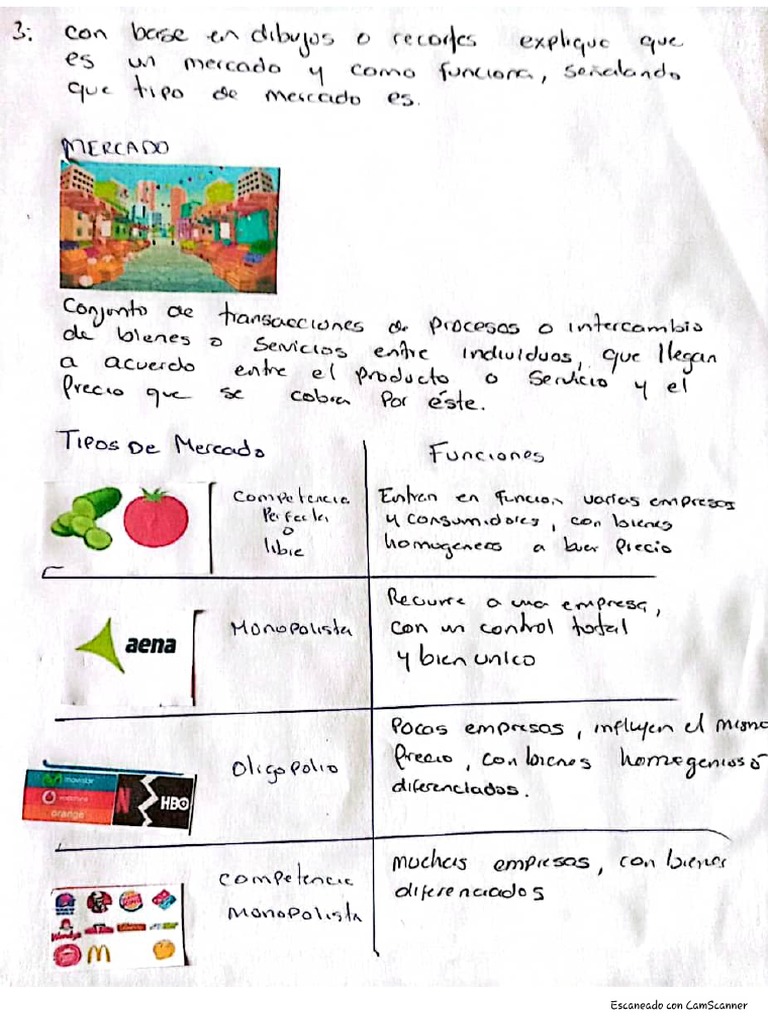 3: con base en dibujos o recortes explique que
es un mercado y como funciona, señalando
que tipo de mercado es.
MERCADO
Conjunto de transacciones de procesos o intercambio
de bienes o servicios entre individuos, que llegan
a acuerdo entre el producto o servicio y el
precio que se cobra por éste.
Tipos De Mercado
Funciones
competencia
Perfecta
o
libre
Entran en funcion varias empresas
y consumidores, con bienes
homogeneos a buen precio
aena
Monopolista
Recurre a una empresa,
con un control total
y bien unico
movistar
vodafone
orange
N
HBO
Oligopolio
Pocas empresas, influyen el mismo
precio, con bienes homogenios o
diferenciados.
competencia
Monopolista
muchas empresas, con bienes
diferenciados
Escaneado con CamScanner